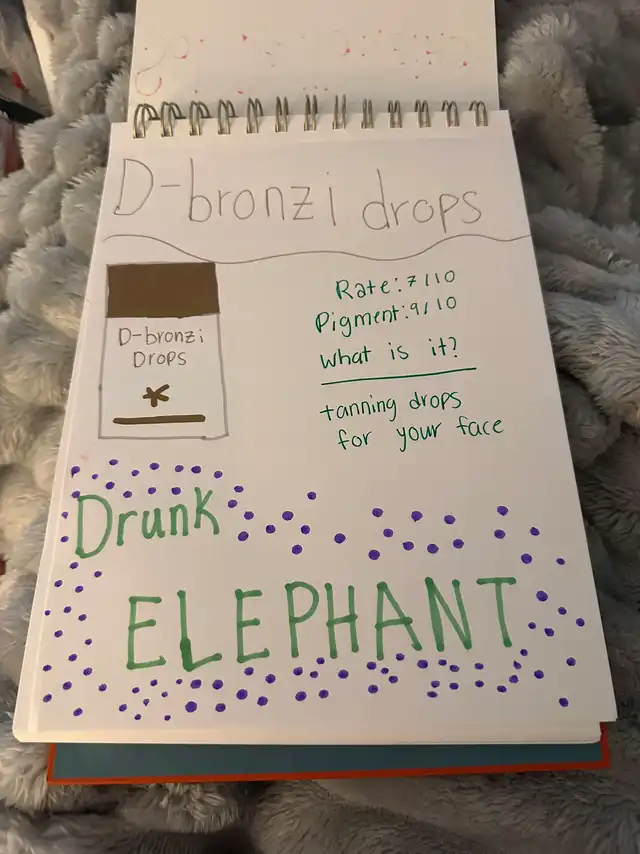 D-bronzi drops
D-bronzi
Drops
Rate: 7/10
Pigment: 9/10
What is it?
tanning drops
for your face
Drunk
ELEPHANT